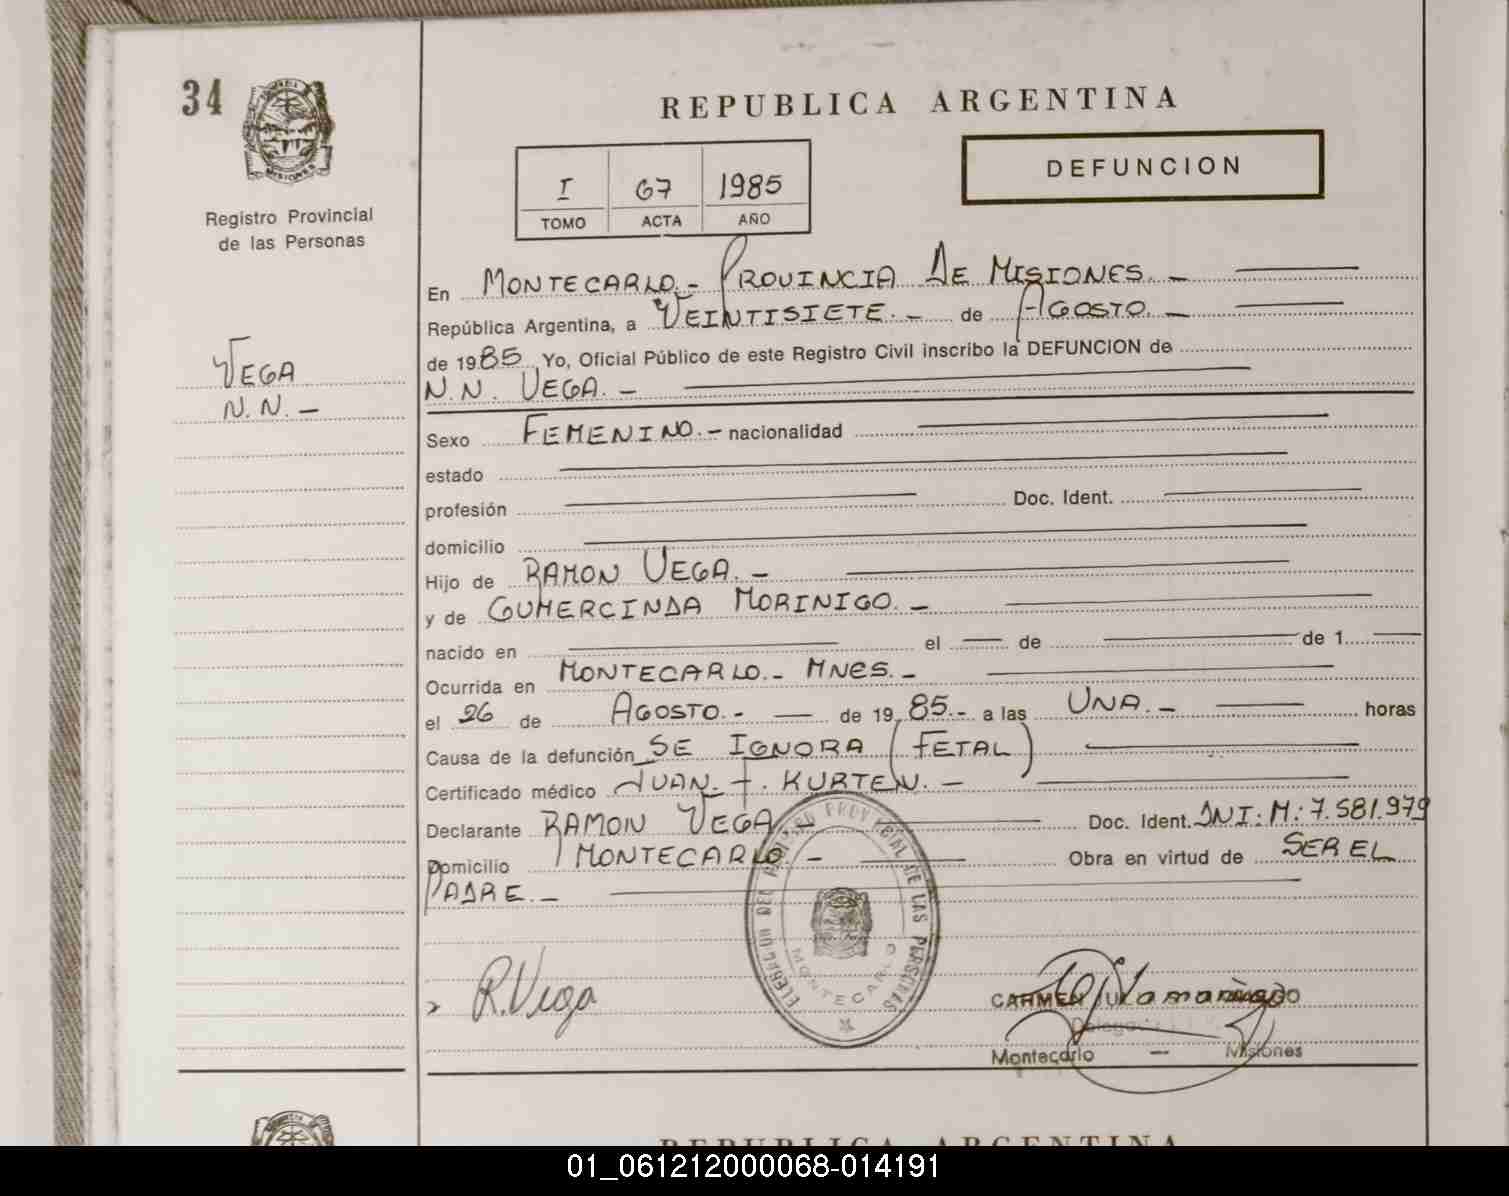 34
MISIONES
Registro Provincial
de las Personas
VEGA
N.N. -
REPUBLICA ARGENTINA
I 67 1985
TOMO ACTA AÑO
DEFUNCION
En MONTECARLO.- PROVINCIA DE MISIONES. -
República Argentina, a VEINTISIETE. - de AGOSTO. -
de 1985 Yo, Oficial Público de este Registro Civil inscribo la DEFUNCION de
N.N. VEGA. -
Sexo FEMENINO. - nacionalidad
estado
profesión Doc. Ident.
domicilio
Hijo de RAMON VEGA. -
y de GUMERCINDA MORINIGO. -
nacido en el de de 1
Ocurrida en MONTECARLO.- MNES. -
el 26 de AGOSTO. - de 1985.- a las UNA. - horas
Causa de la defunción SE IGNORA (FETAL)
Certificado médico JUAN. F. KURTEN. -
Declarante RAMON VEGA. - Doc. Ident. DNI: M: 7.581.979
Domicilio MONTECARLO. - Obra en virtud de SER EL
PADRE. -
R. Vega
REGISTRO PROVINCIAL DE LAS PERSONAS
MONTECARLO
CARMEN
Montecarlo - Misiones
REPUBLICA ARGENTINA
01_061212000068-014191